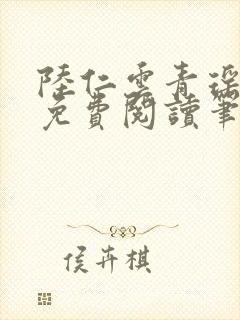 陸仁雲青瑤
免費閱讀筆
侯卉棋